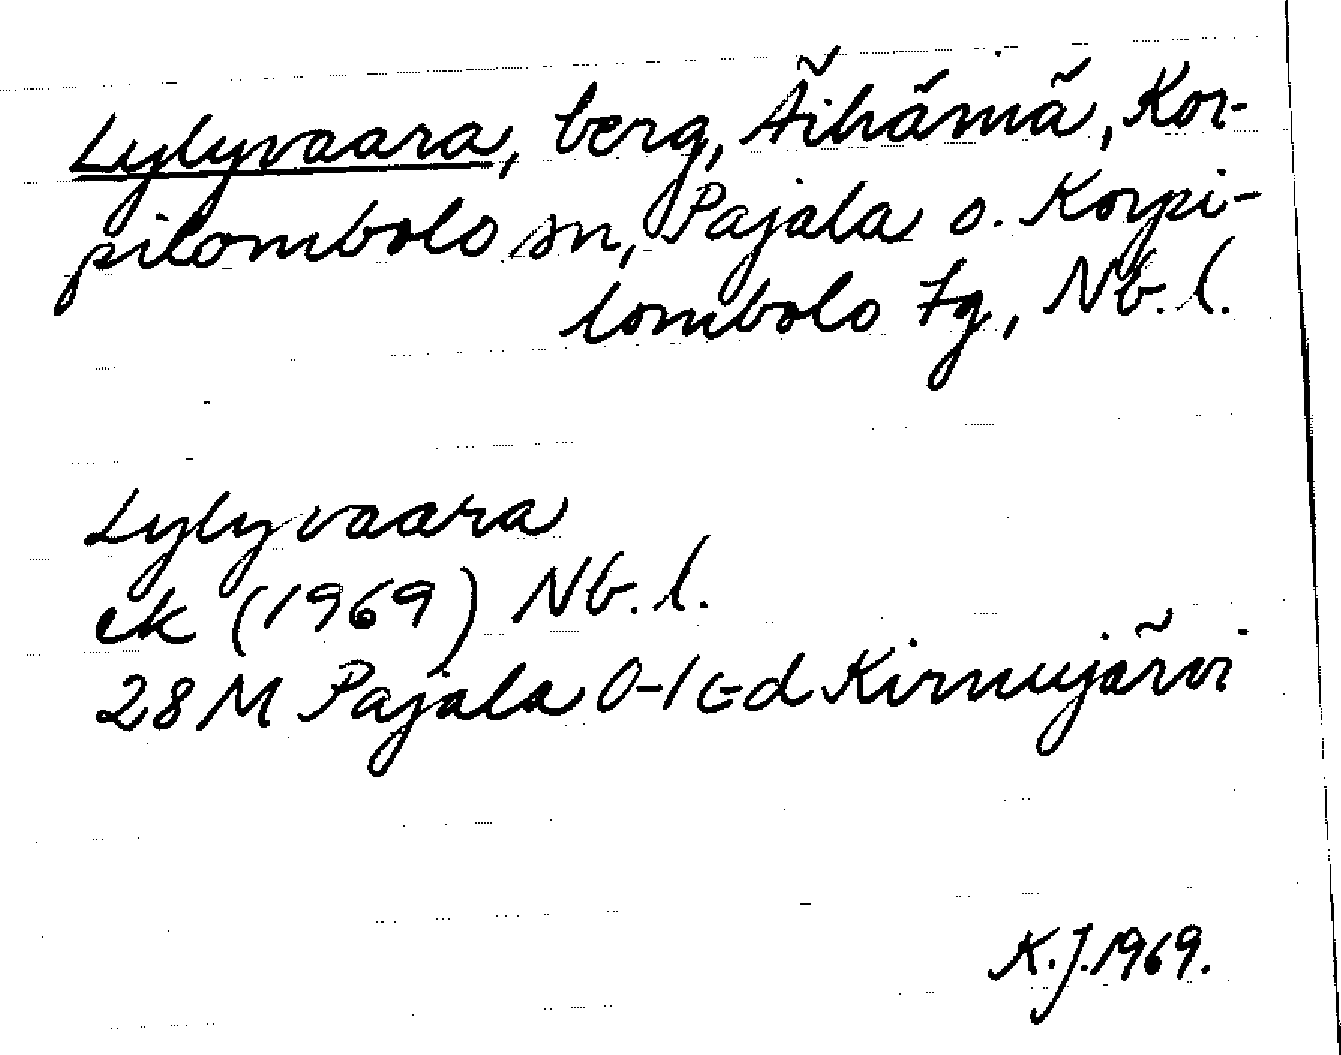 Lylyvaara, berg, Äihämä, Kor-
pilombolo sn, Pajala o. Korpi-
lombolo tg, Nb. l.
Lylyvaara
ek (1969) Nb. l.
28 M Pajala 0-1 c-d Kirnujärvi
K.J. 1969.